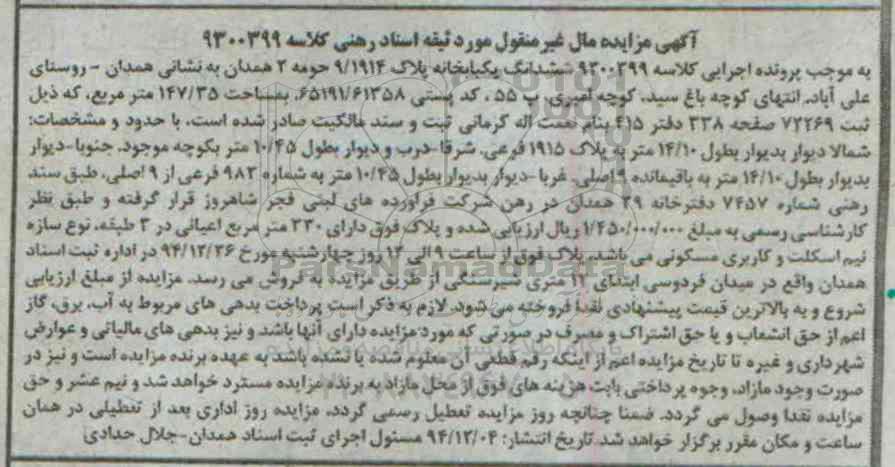 آگهی مزایده مال غیر منقول مورد ثیقه اسناد رهنی کلاسه ۹۳۰۰۳۹۹
به موجب پرونده اجرایی کلاسه ۹۳۰۰۳۹۹ ششدانگ یکبابخانه پلاک ۹/۱۹۱۴ حومه ۲ همدان به نشانی همدان - روستای
علی آباد، انتهای کوچه باغ سید، کوچه امیری، پ ۵۵ ، کد پستی ۶۵۱۹۱/۶۱۳۵۸، بمساحت ۱۴۷/۳۵ متر مربع، که ذیل
ثبت ۷۲۲۶۹ صفحه ۳۳۸ دفتر ۴۱۵ بنام نعمت اله کرمانی ثبت و سند مالکیت صادر شده است، با حدود و مشخصات:
شمالا دیوار بدیوار بطول ۱۴/۱۰ متر به پلاک ۱۹۱۵ فرعی، شرقا-درب و دیوار بطول ۱۰/۴۵ متر بکوچه موجود. جنوبا-دیوار
بدیوار بطول ۱۴/۱۰ متر به باقیمانده ۹ اصلی، غربا -دیوار بدیوار بطول ۱۰/۴۵ متر به شماره ۹۸۳ فرعی از ۹ اصلی، طبق سند
رهنی شماره ۷۴۵۷ دفترخانه ۲۹ همدان در رهن شرکت فرآورده های لبنی فجر شاهروز قرار گرفته و طبق نظر
کارشناسی رسمی به مبلغ ۱/۴۵۰/۰۰۰/۰۰۰ ریال ارزیابی شده و پلاک فوق دارای ۲۳۰ متر مربع اعیانی در ۲ طبقه، نوع سازه
نیم اسکلت و کاربری مسکونی می باشد، پلاک فوق از ساعت ۹ الی ۱۲ روز چهارشنبه مورخ ۹۴/۱۲/۲۶ در اداره ثبت اسناد
همدان واقع در میدان فردوسی ابتدای ۱۲ متری شیرسنگی از طریق مزایده به فروش می رسد. مزایده از مبلغ ارزیابی
شروع و به بالاترین قیمت پیشنهادی نقدا فروخته می شود. لازم به ذکر است پرداخت بدهی های مربوط به آب، برق، گاز
اعم از حق انشعاب و یا حق اشتراک و مصرف در صورتی که مورد مزایده دارای آنها باشد و نیز بدهی های مالیاتی و عوارض
شهرداری و غیره تا تاریخ مزایده اعم از اینکه رقم قطعی آن معلوم شده یا نشده باشد به عهده برنده مزایده است و نیز در
صورت وجود مازاد، وجوه پرداختی بابت هزینه های فوق از محل مازاد به برنده مزایده مسترد خواهد شد و نیم عشر و حق
مزایده نقدا وصول می گردد. ضمنا چنانچه روز مزایده تعطیل رسمی گردد، مزایده روز اداری بعد از تعطیلی در همان
ساعت و مکان مقرر برگزار خواهد شد. تاریخ انتشار: ۹۴/۱۲/۰۴ مسئول اجرای ثبت اسناد همدان-جلال حدادی
ParsNamadData